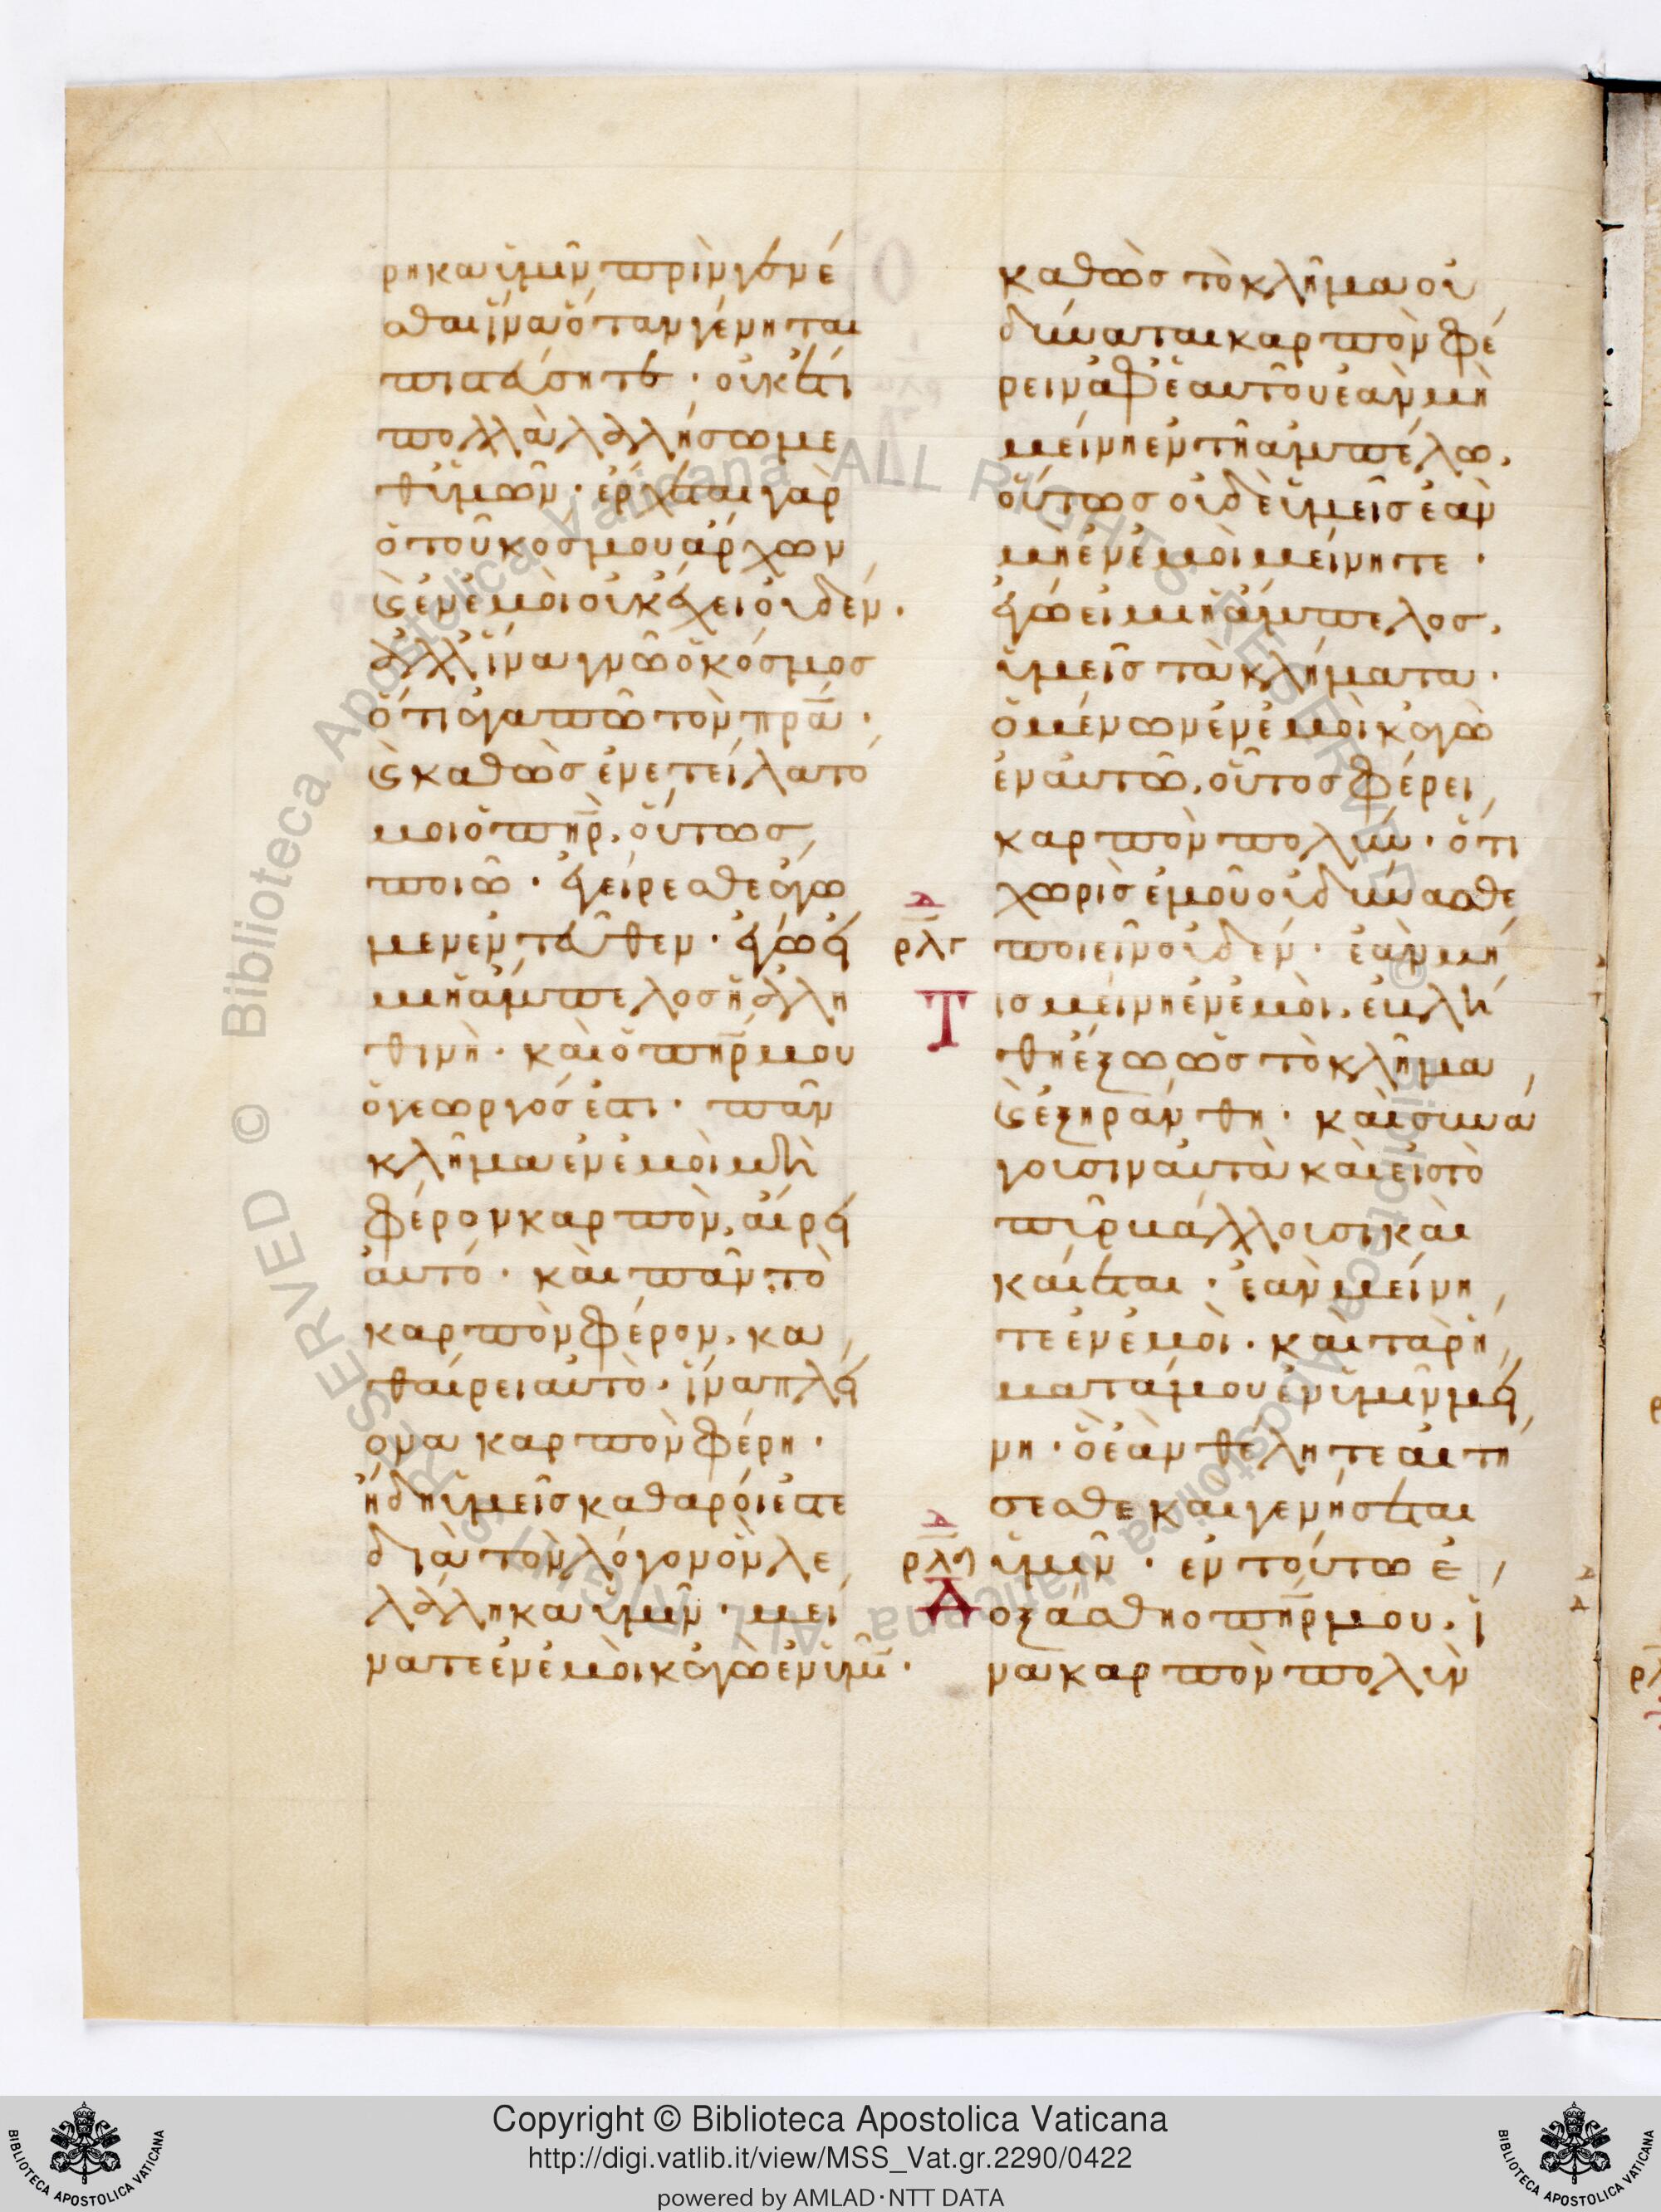 ρηκα ὑμῖν πρὶν γενέ
σθαι ἵνα ὅταν γένηται
πιστεύσητε · οὐκέτι
πολλὰ λαλήσω με
θ ὑμῶν · ἔρχεται γὰρ
ὁ τοῦ κόσμου ἄρχων
ϛ ἐν ἐμοὶ οὐκ ἔχει οὐδέν ·
ἀλλ ἵνα γνῶ ὁ κόσμος
ὅτι ἀγαπῶ τὸν πρα ·
ϛ καθὼς ἐνετείλατό
μοι ὁ πηρ, οὕτως
ποιῶ · ἐγείρεσθε ἄγω
μεν ἐντεῦθεν · ἐγώ εἰ
μι ἡ ἄμπελος ἡ ἀλη
θινὴ · καὶ ὁ πηρ μου
ὁ γεωργός ἐστι · πᾶν
κλῆμα ἐν ἐμοὶ μὴ
φέρον καρπὸν, αἴρει
ἀυτό · καὶ πᾶν τὸ
καρπὸν φέρον, κα
θαίρει αὐτὸ · ἵνα πλεί
ονα καρπὸν φέρη ·
ἤδη ὑμεῖς καθαροί ἐστε
διὰ τὸν λόγον ὃν λε
λάληκα ὑμῖν · μεί
νατε ἐν ἐμοὶ κἀγὼ ἐν ὑμῖ ·
καθὼς τὸ κλῆμα οὐ
δύναται καρπὸν φέ
ρειν ἀφ ἑαυτοῦ ἐὰν μὴ
μείνη ἐν τῆ ἀμπέλω,
οὕτως οὐδὲ ὑμεῖς ἐὰν
μὴ ἐν ἐμοὶ μείνητε ·
ἐγώ εἰμι ἡ ἄμπελος,
ὑμεῖς τὰ κλήματα ·
ὁ μένων ἐν ἐμοὶ κἀγὼ
ἐν ἀυτῶ, οὗτος φέρει
καρπὸν πολύν · ὅτι
χωρὶς ἐμοῦ οὐ δύνασθε
ρλγ ποιεῖν οὐδέν · ἐὰν μή
Τ ις μείνη ἐν ἐμοὶ, ἐβλή
θη ἔξω ὡς τὸ κλῆμα
ϛ ἐξηράνθη · καὶ συνά
γουσιν ἀυτὰ καὶ εἰς τὸ
πῦρ βάλλουσι καὶ
καίεται · ἐὰν μείνη
τε ἐν ἐμοὶ · καὶ τὰ ῥή
ματά μου ἐν ὑμῖν μεί
νη · ὃ ἐὰν θέλητε αἰτή
σεσθε καὶ γενήσεται
ρλδ ὑμῖν · ἐν τούτω ἐ
Δ οξάσθη ὁ πηρ μου, ἵ
να καρπὸν πολὺν
Copyright © Biblioteca Apostolica Vaticana
http://digi.vatlib.it/view/MSS_Vat.gr.2290/0422
powered by AMLAD·NTT DATA